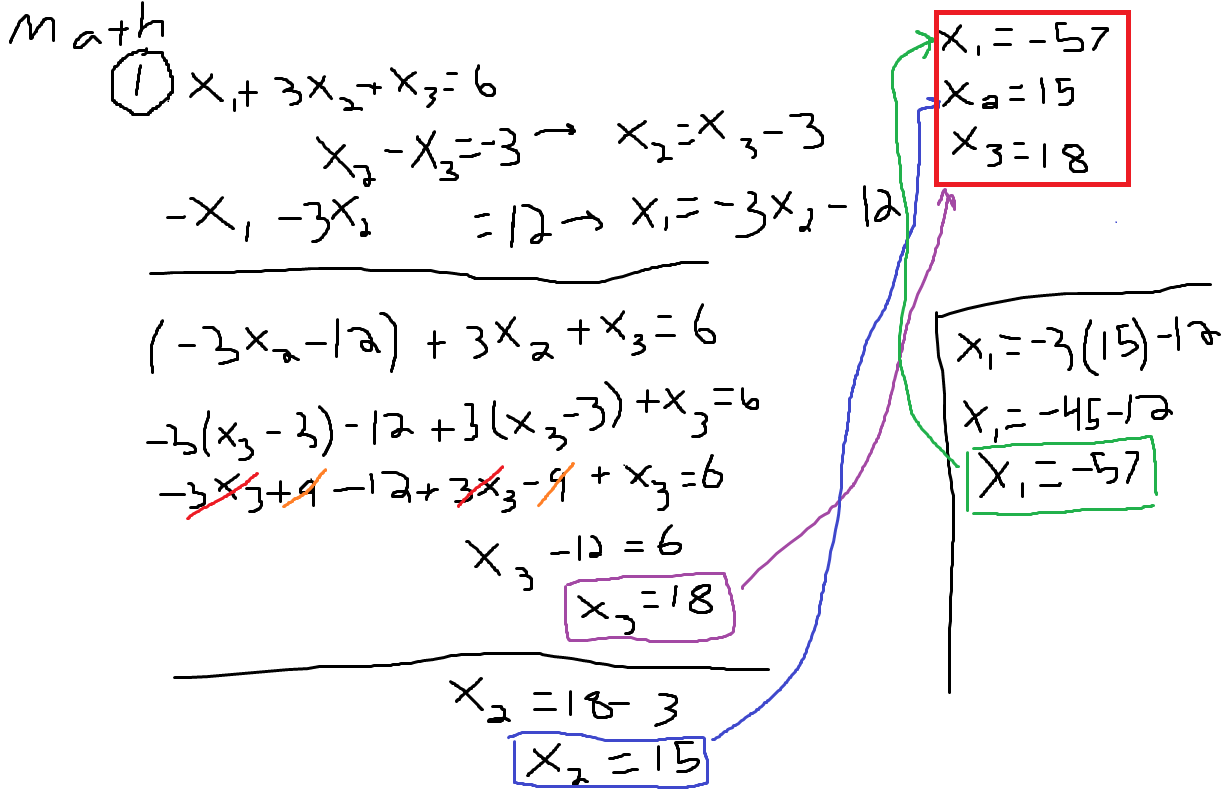 Math
① x₁ + 3x₂ + x₃ = 6
x₂ - x₃ = -3 → x₂ = x₃ - 3
-x₁ - 3x₂ = 12 → x₁ = -3x₂ - 12
(-3x₂ - 12) + 3x₂ + x₃ = 6
-3(x₃ - 3) - 12 + 3(x₃ - 3) + x₃ = 6
-3x₃ + 9 - 12 + 3x₃ - 9 + x₃ = 6
x₃ - 12 = 6
x₃ = 18
x₂ = 18 - 3
x₂ = 15
x₁ = -3(15) - 12
x₁ = -45 - 12
x₁ = -57
x₁ = -57
x₂ = 15
x₃ = 18